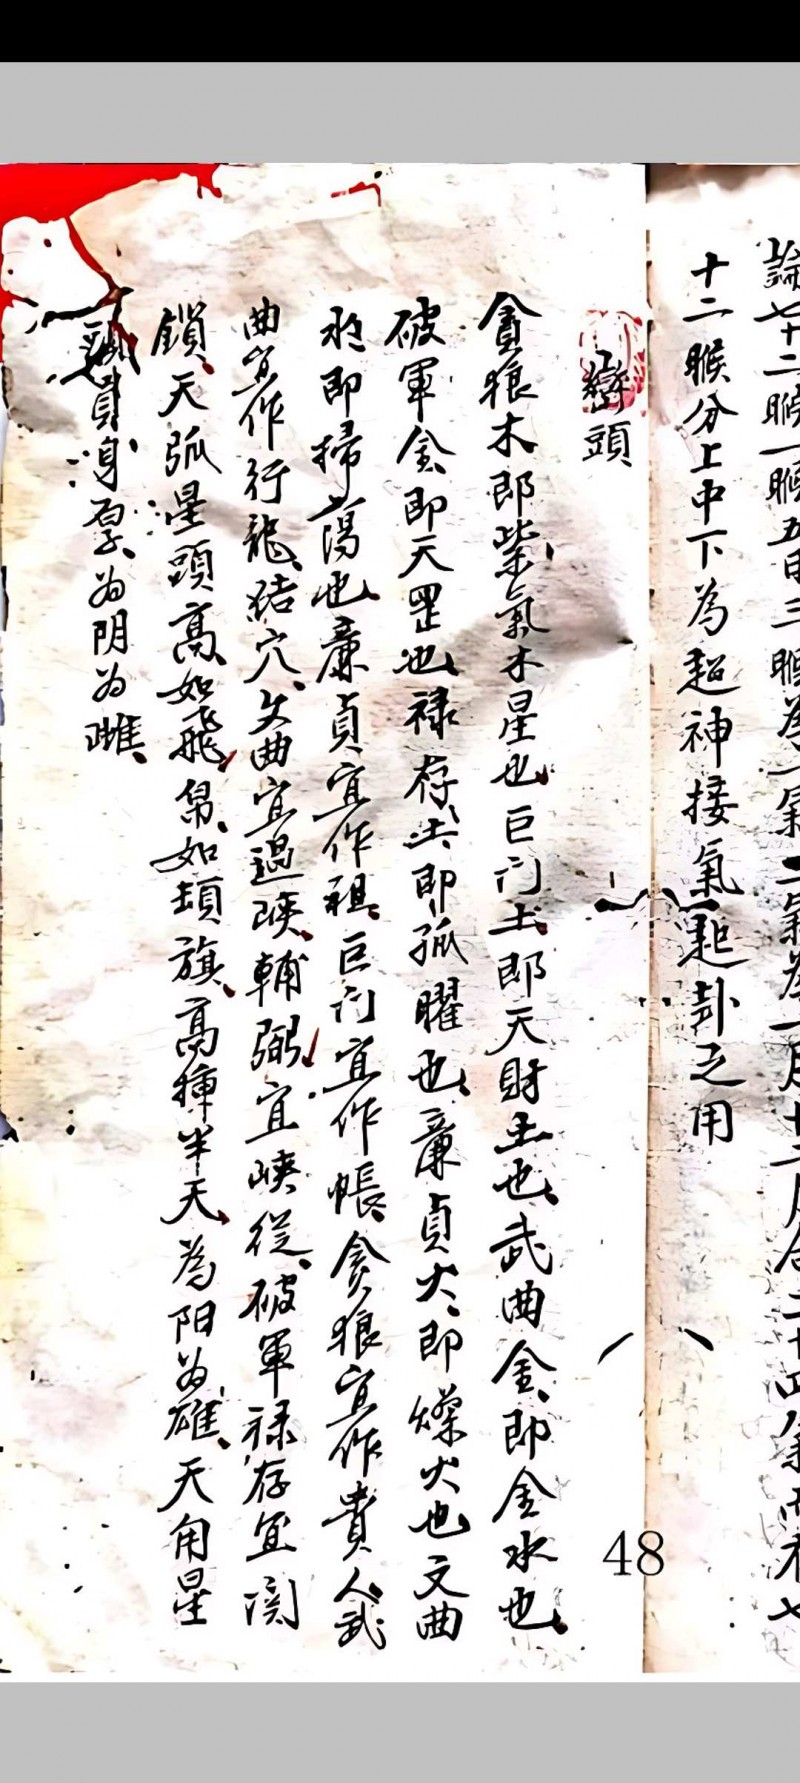 論七十二睺一睺五日三睺為一氣二氣為一月十二月合二十四氣而有七
十二睺分上中下為超神接氣起卦之用
巒頭
貪狼木即紫氣木星也巨门土即天財土也武曲金即金水也
破軍金即天罡也禄存土即孤曜也亷貞火即燥火也文曲
水即掃蕩也亷貞宜作祖巨门宜作帳貪狼宜作貴人武
曲宜作行龍猪穴文曲宜過峽輔弼宜峽從破軍禄存宜関
鎖天弧星頭高如飛帛如頓旗高揷半天為阳为雄天角星
貞身為阴为雌
48